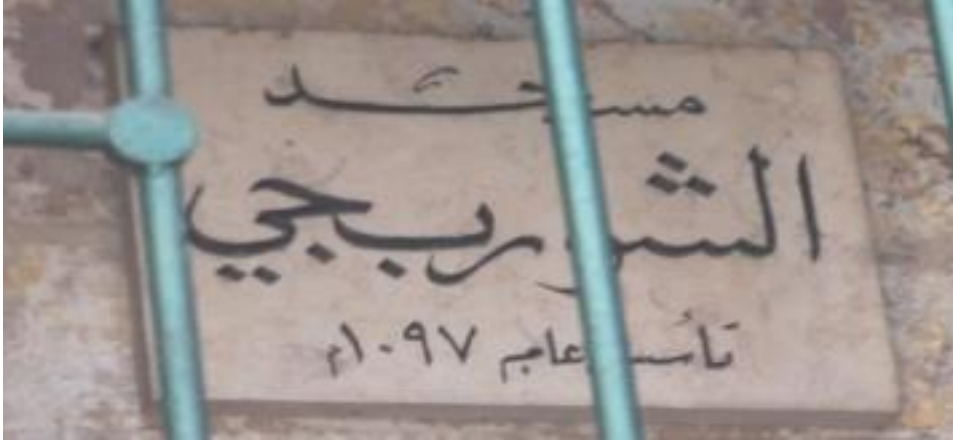 مسجد
الشوربجي
تأسس عام ١٠٩٧م